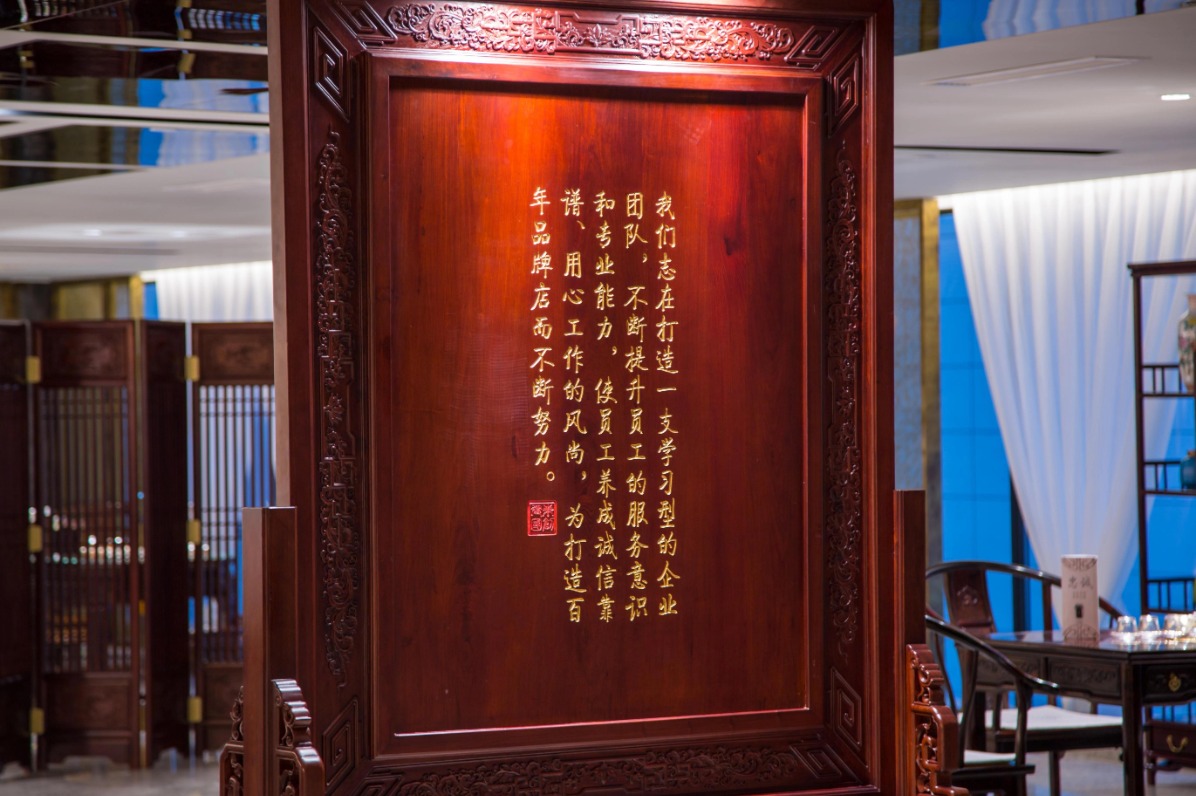 我们志在打造一支学习型的企业
团队，不断提升员工的服务意识
和专业能力，使员工养成诚信靠
谱、用心工作的风尚，为打造百
年品牌店而不断努力。
忠诚